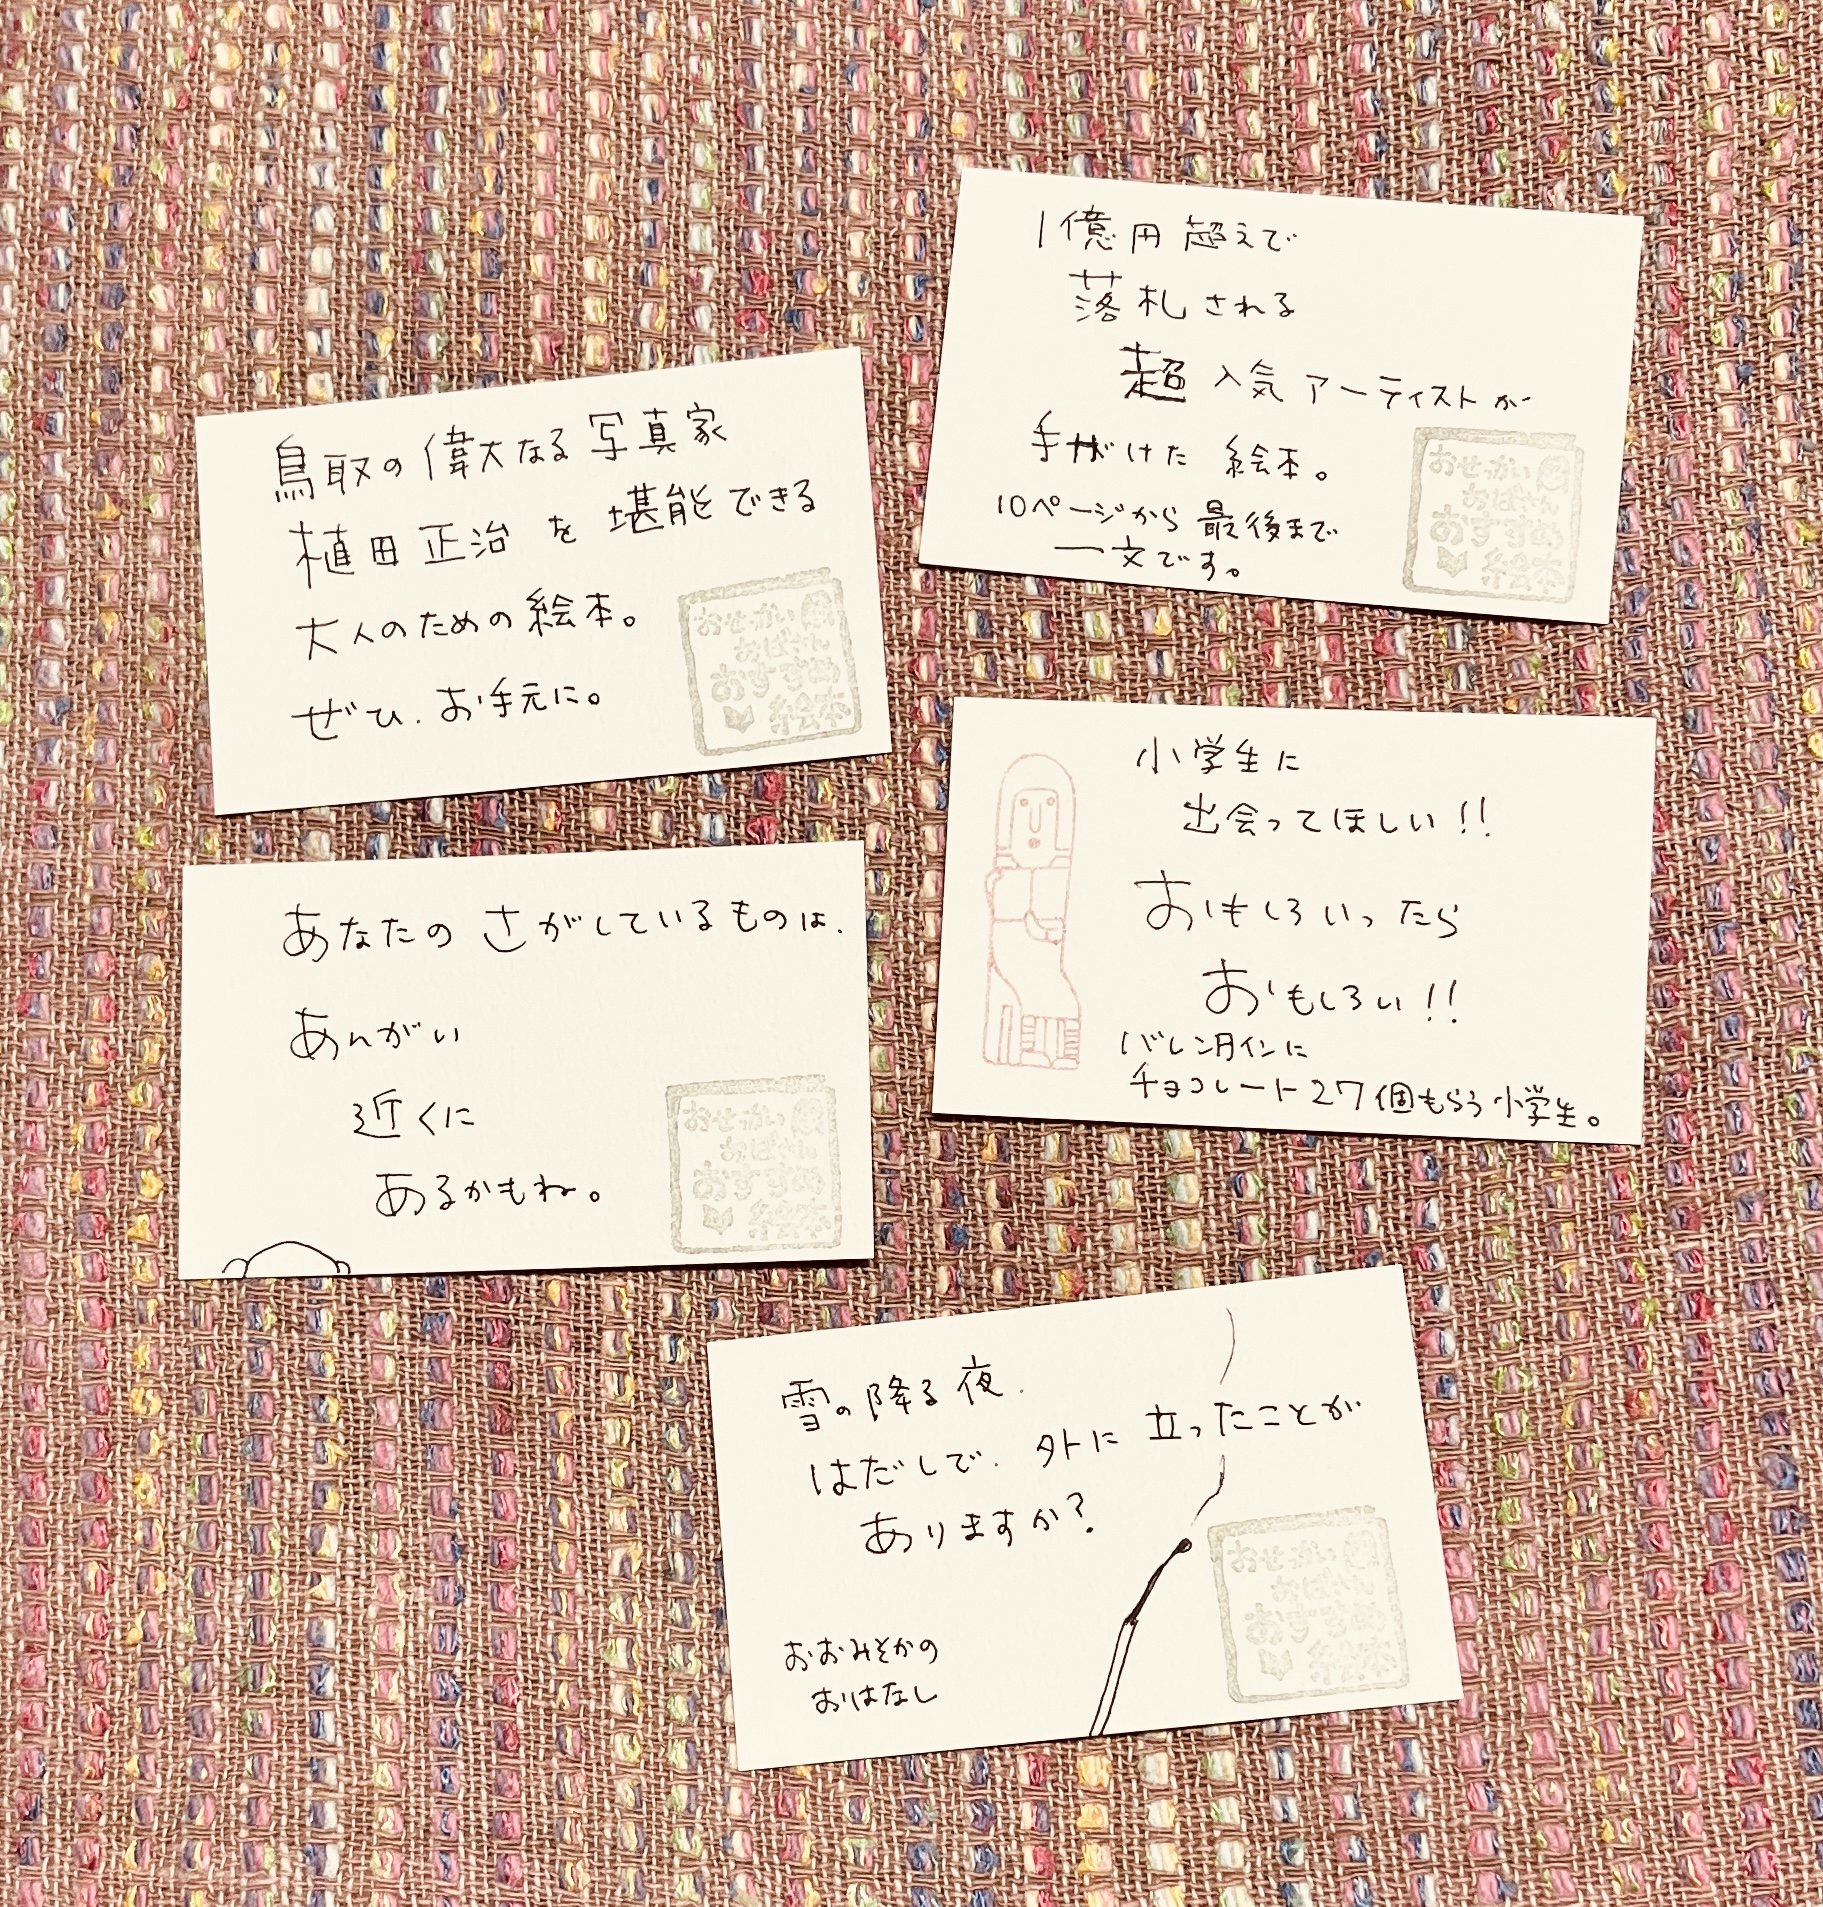 1億円超えで
落札される
超人気アーティストが
手がけた絵本。
10ページから最後まで
一文です。
おせっかい
おばちゃん
おすすめ
絵本
鳥取の偉大なる写真家
植田正治を堪能できる
大人のための絵本。
ぜひ、お手元に。
おせっかい
おばちゃん
おすすめ
絵本
小学生に
出会ってほしい!!
おもしろいったら
おもしろい!!
バレンタインに
チョコレート27個もらう小学生。
あなたのさがしているものは、
あんがい
近くに
あるかもね。
おせっかい
おばちゃん
おすすめ
絵本
雪の降る夜、
はだしで、外に立ったことが
ありますか?
おおみそかの
おはなし
おせっかい
おばちゃん
おすすめ
絵本